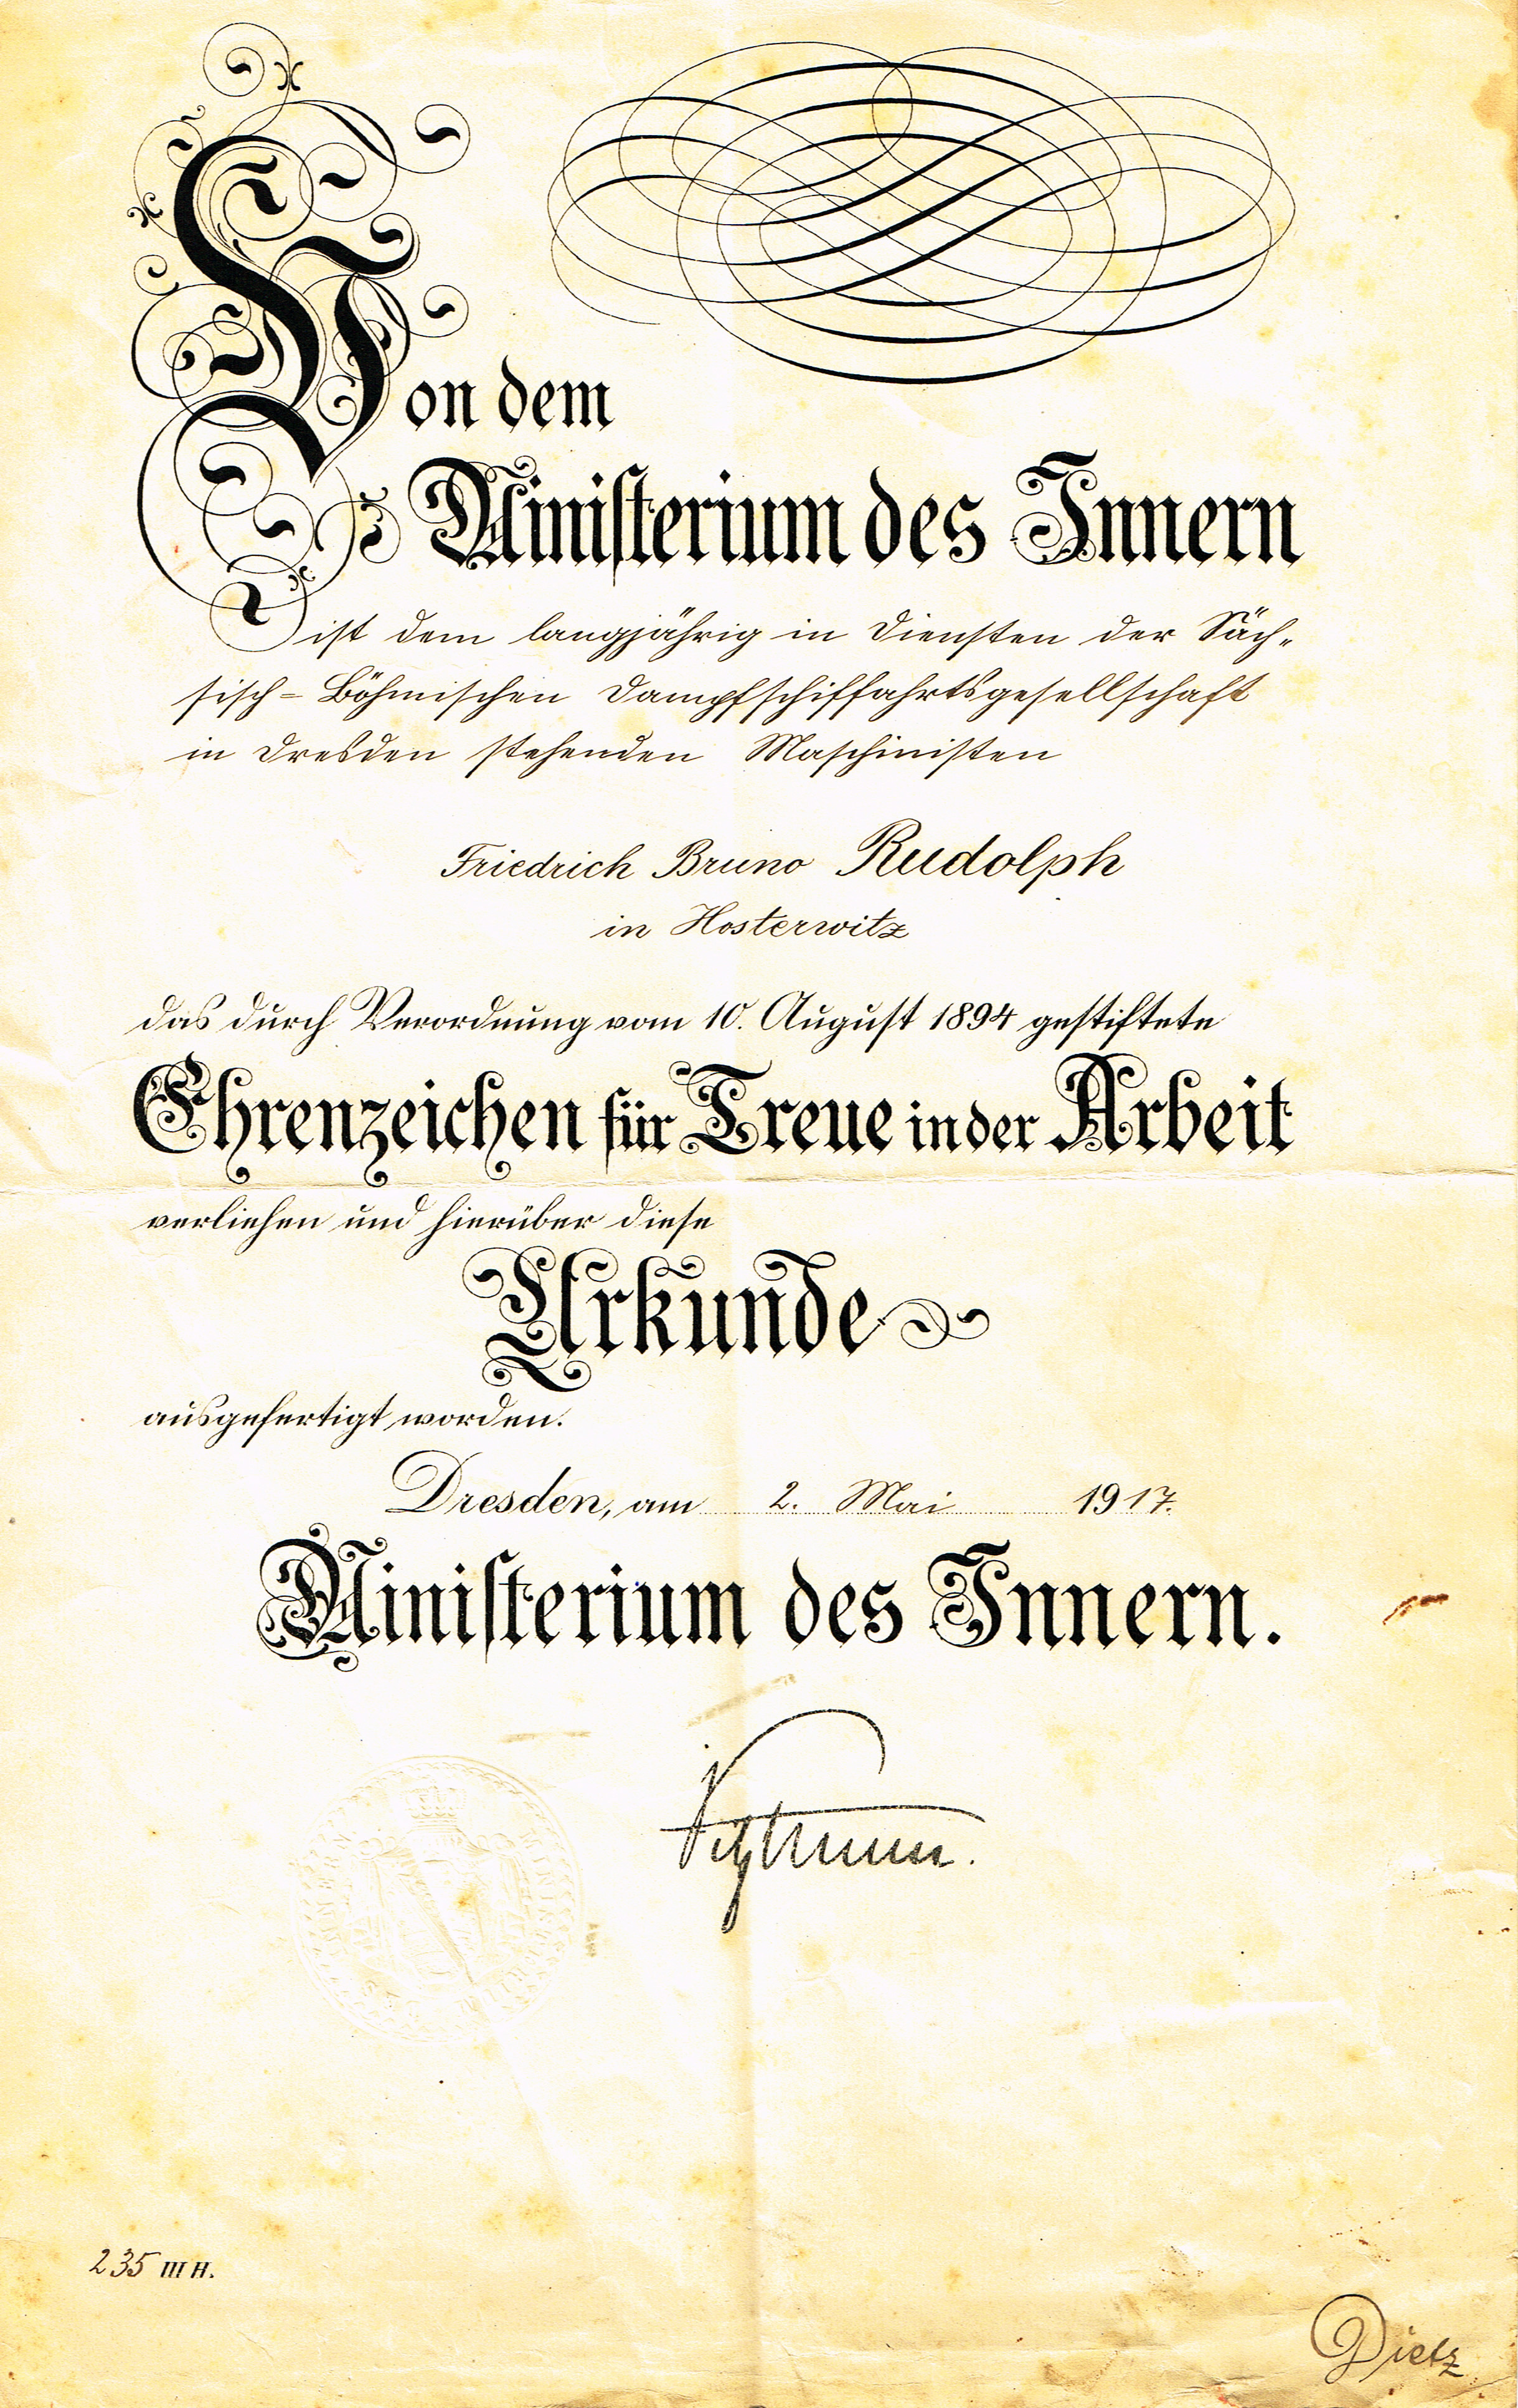 Von dem
Ministerium des Innern
ist dem langjährig in Diensten der Säch-
sisch-Böhmischen Dampfschiffahrtsgesellschaft
in Dresden stehenden Maschinisten
Friedrich Bruno Rudolph
in Hosterwitz
das durch Verordnung vom 10. August 1894 gestiftete
Ehrenzeichen für Treue in der Arbeit
verliehen und hierüber diese
Urkunde
ausgefertigt worden.
Dresden, am 2. Mai 1917.
Ministerium des Innern.
235 III H.
Dietz